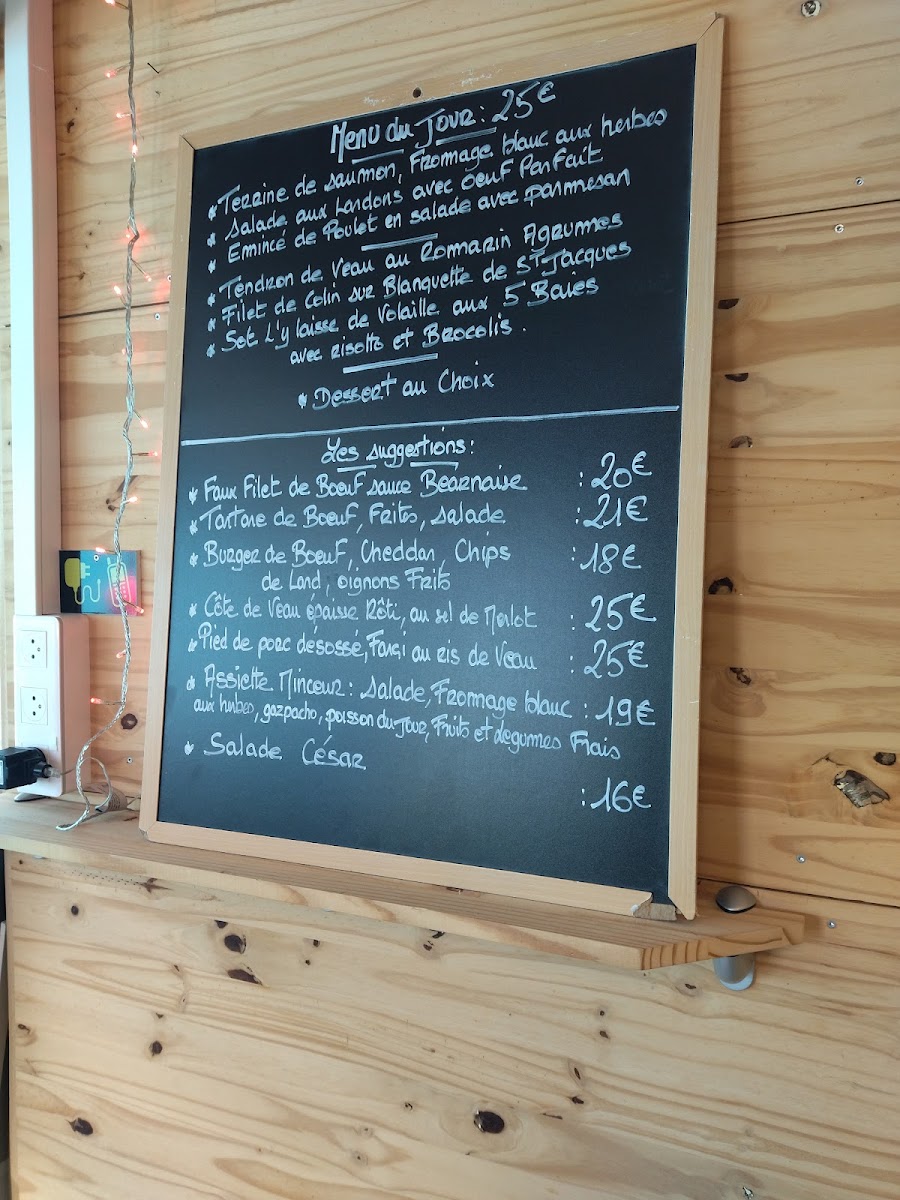 Menu du Jour : 25€
* Terrine de saumon, Fromage blanc aux herbes
* Salade aux Lardons avec oeuf Parfait
* Emincé de Poulet en salade avec parmesan
* Tendron de Veau au Romarin Agrumes
* Filet de Colin sur Blanquette de St Jacques
* Sot L'y laisse de Volaille aux 5 Baies
avec risotto et Brocolis.
* Dessert au Choix
Les suggestions :
* Faux Filet de Boeuf sauce Bearnaise : 20€
* Tartare de Boeuf, Frites, salade : 21€
* Burger de Boeuf, Cheddar, Chips : 18€
de Lard, oignons Frits
* Côte de Veau épaisse Rôti, au sel de Merlot : 25€
* Pied de porc désossé, Farçi au ris de Veau : 25€
* Assiette Minceur : Salade, Fromage blanc : 19€
aux herbes, gazpacho, poisson du Jour, Fruits et légumes Frais
* Salade César
: 16€